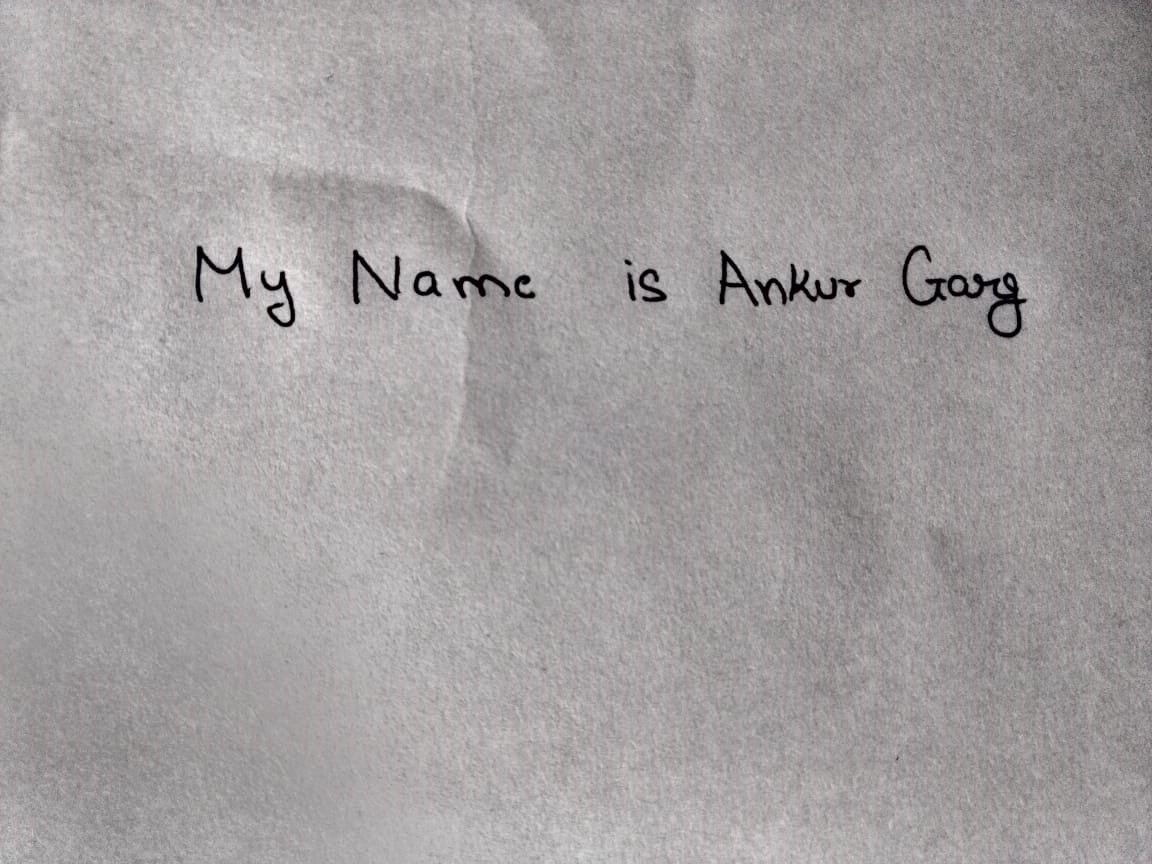 My Name is Ankur Garg